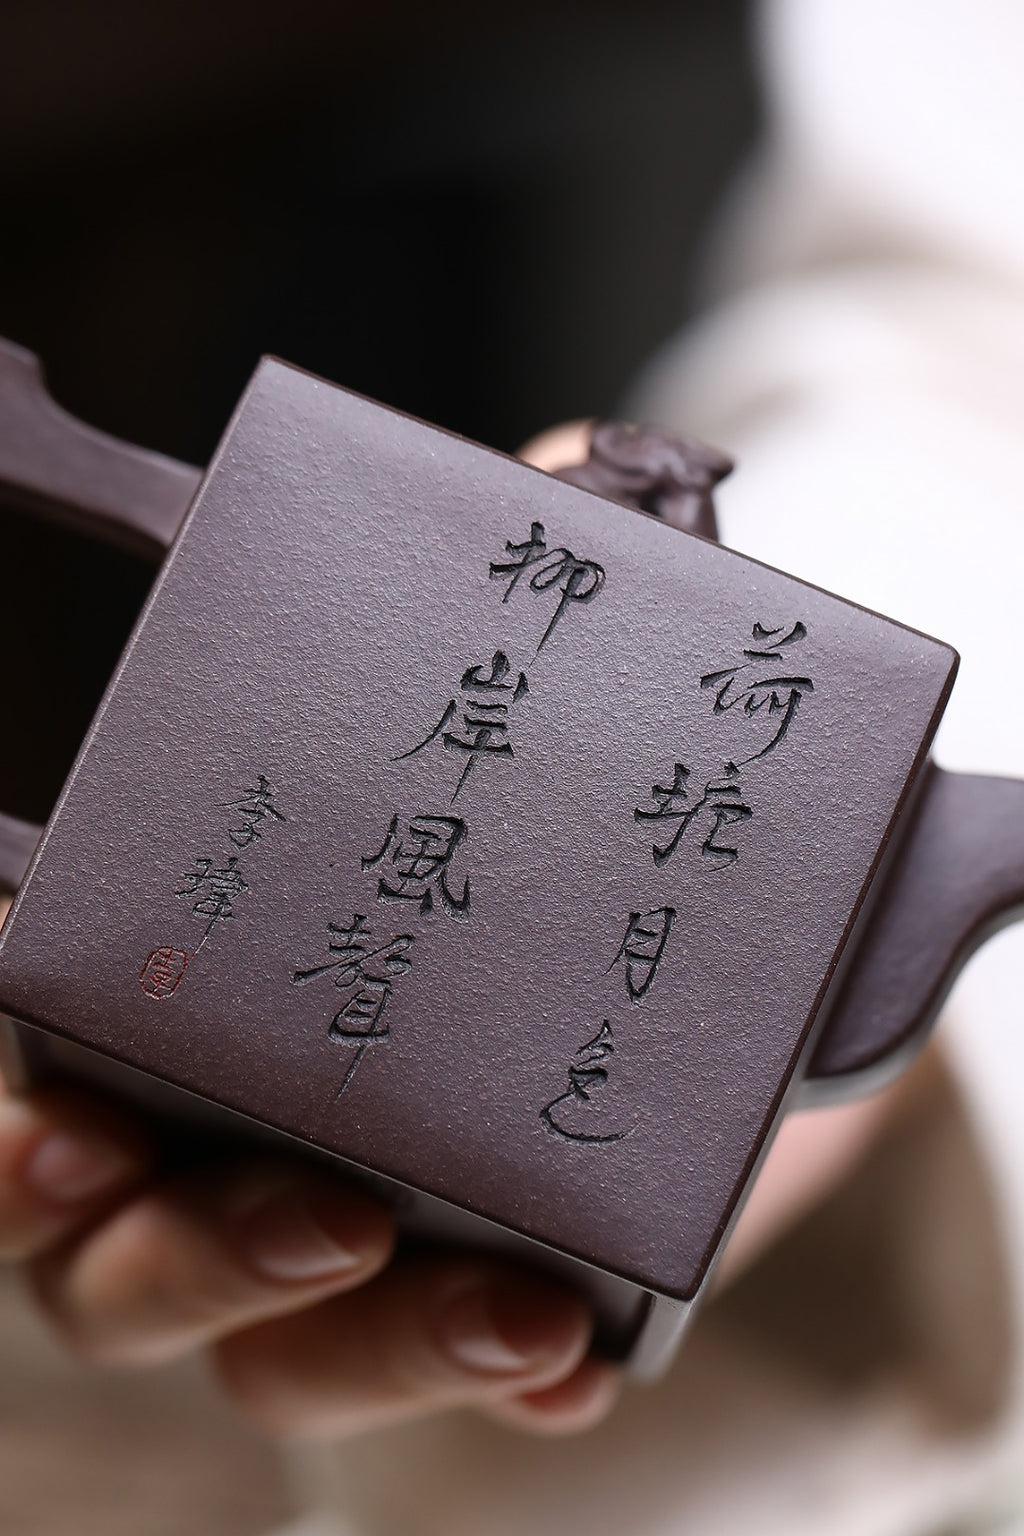 荷塘月色
柳岸風聲
李瑋